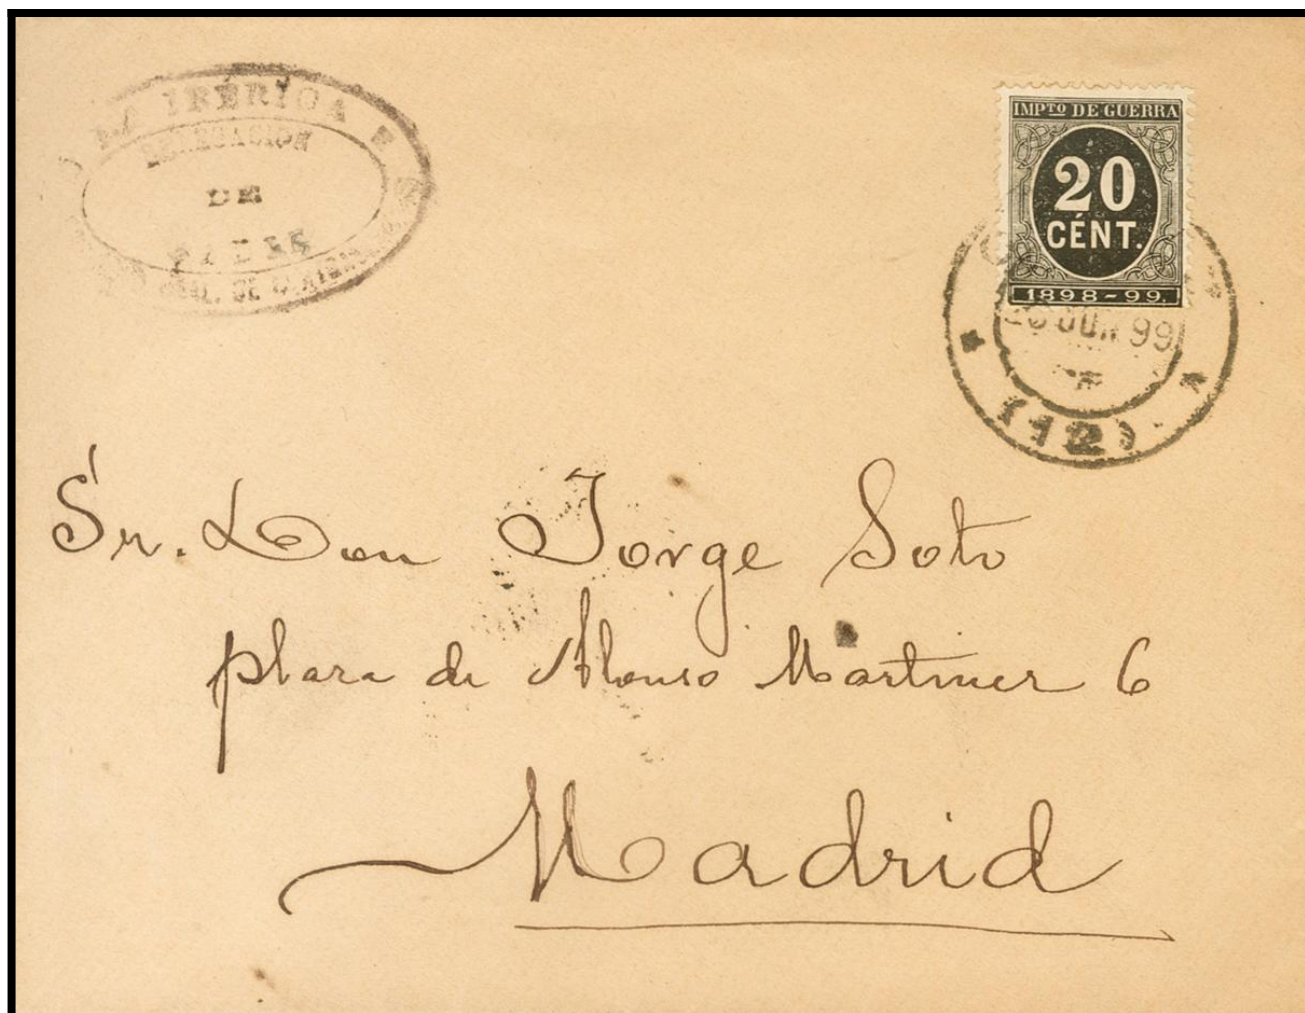 LA IBÉRICA
DELEGACION
DE
IMPTO DE GUERRA
20
CÉNT.
1898-99.
JUN 99
(12)
Sr. Don Jorge Soto
plaza de Alonso Martinez 6
Madrid